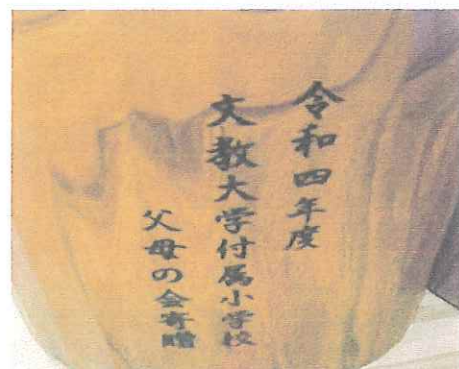 令和四年度
文教大学付属小学校
父母の会寄贈